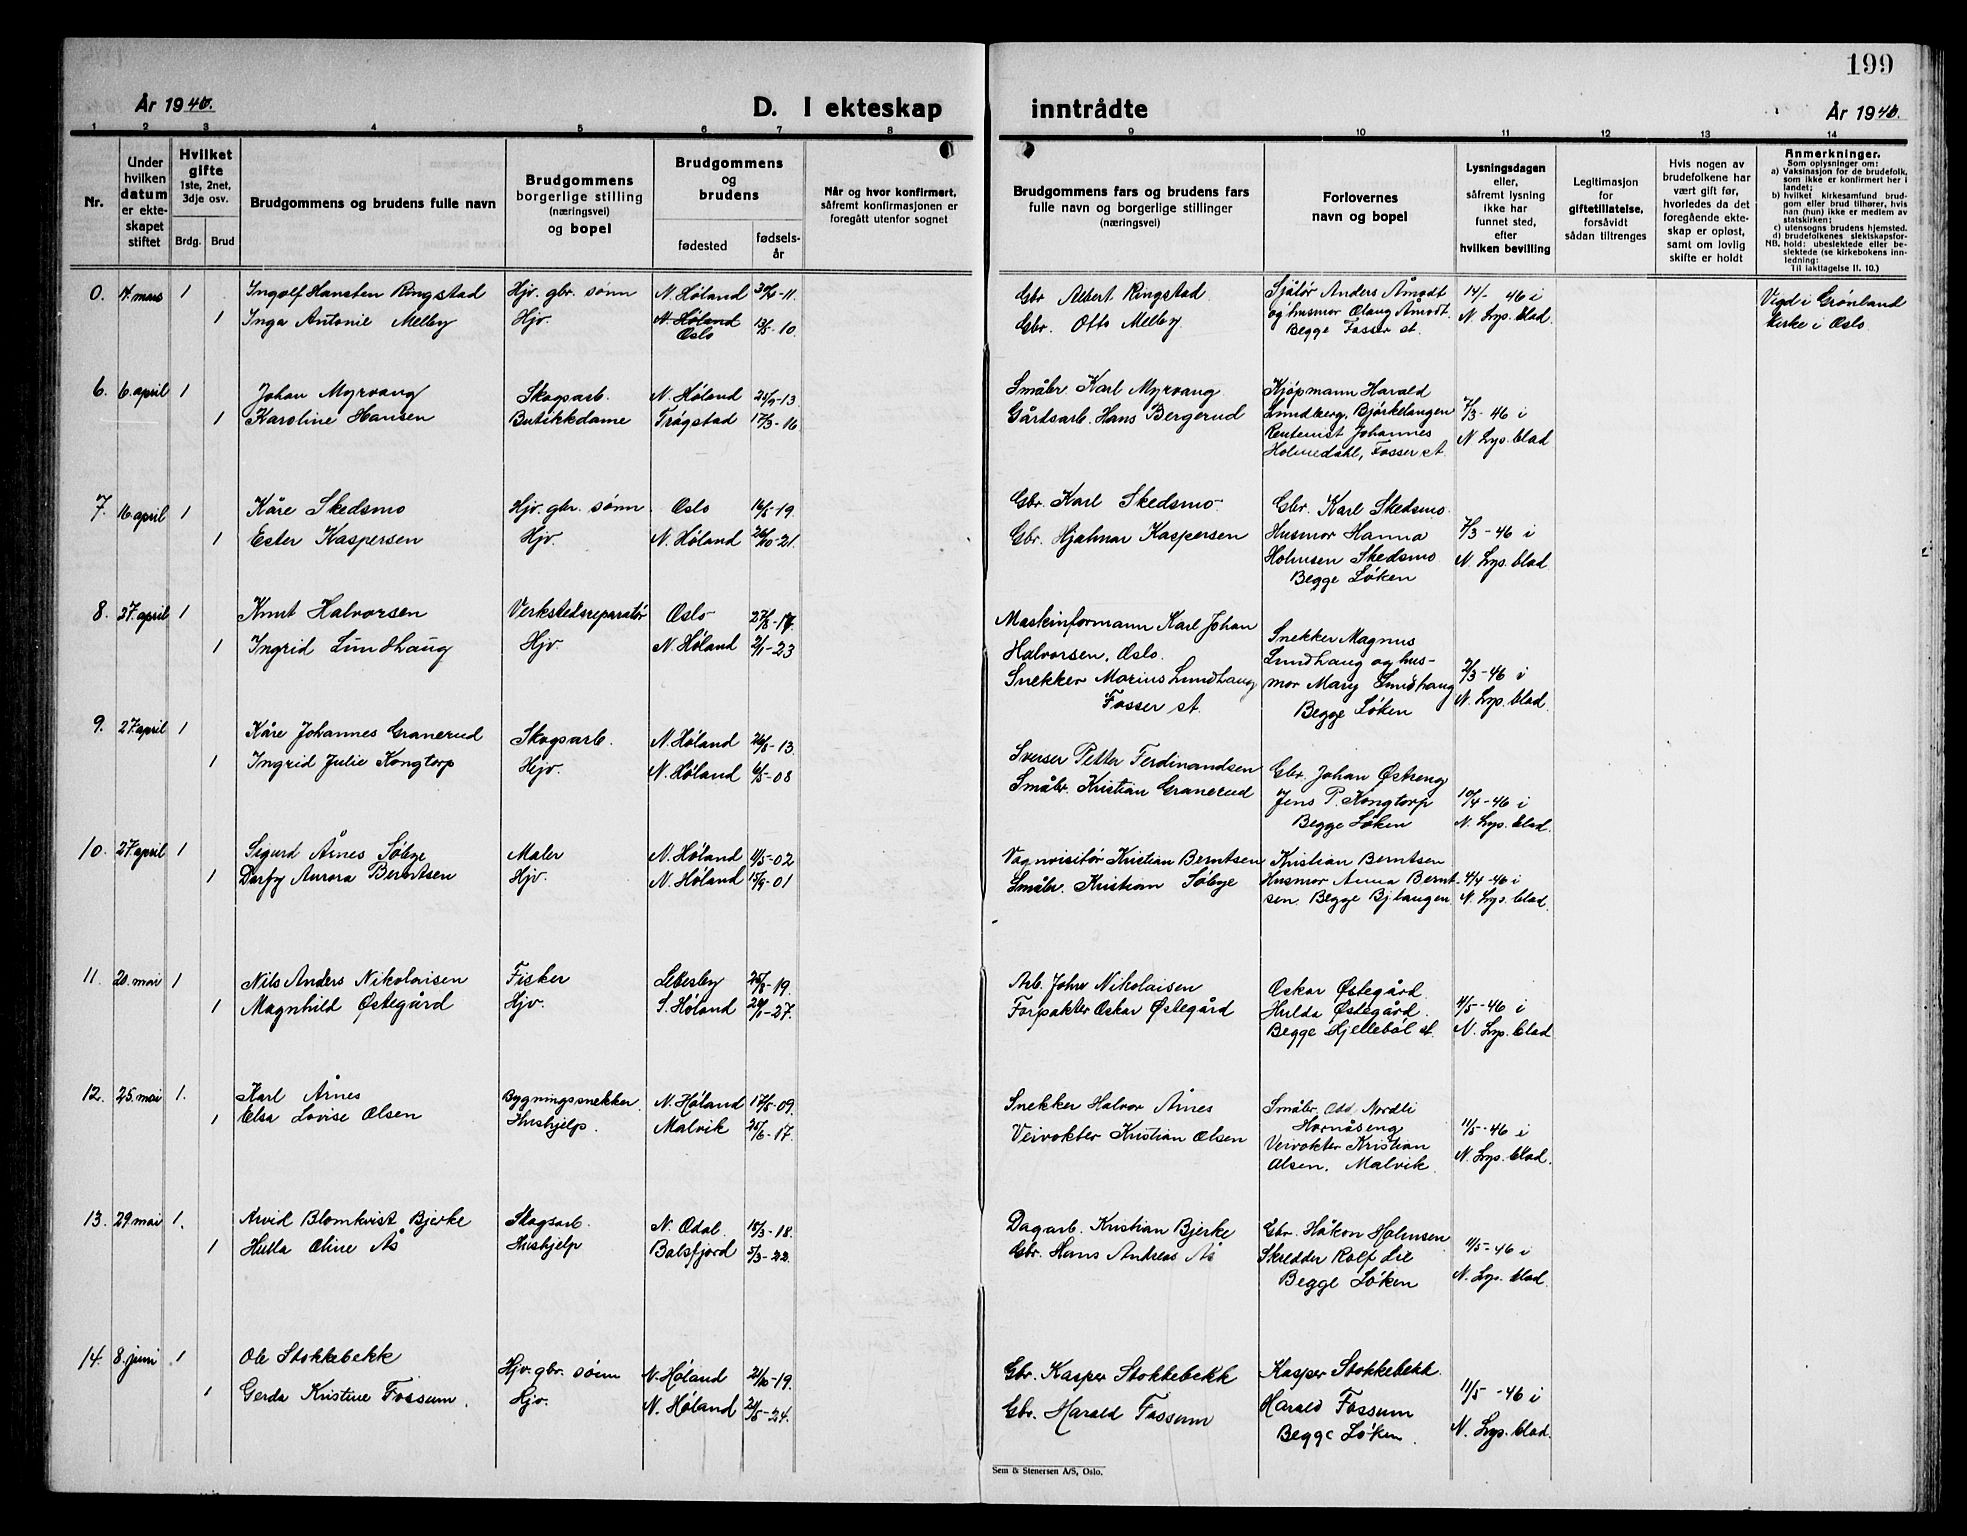 199
År 1946.
D. I ekteskap
inntrådte
År 1946.
1 2 3 4 5 6 7 8 9 10 11 12 13 14
Nr.
Under
hvilken
datum
er ekte-
skapet
stiftet
Hvilket
gifte
1ste, 2net,
3dje osv.
Brdg. Brud
Brudgommens og brudens fulle navn
Brudgommens
borgerlige stilling
(næringsvei)
og bopel
Brudgommens
og
brudens
fødested
fødsels-
år
Når og hvor konfirmert,
såfremt konfirmasjonen er
foregått utenfor sognet
Brudgommens fars og brudens fars
fulle navn og borgerlige stillinger
(næringsvei)
Forlovernes
navn og bopel
Lysningsdagen
eller,
såfremt lysning
ikke har
funnet sted,
efter
hvilken bevilling
Legitimasjon
for
giftetillatelse,
forsåvidt
sådan tiltrenges
Hvis nogen av
brudefolkene har
vært gift før,
hvorledes da det
foregående ekte-
skap er opløst,
samt om lovlig
skifte er holdt
Anmerkninger.
Som oplysninger om:
a) Vaksinasjon for de brudefolk,
som ikke er konfirmert her i
landet;
b) hvilket kirkesamfund brud-
gom eller brud tilhører, hvis
han (hun) ikke er medlem av
statskirken;
c) utensogns brudens hjemsted.
d) brudefolkenes slektskapsfor-
NB. hold: ubeslektede eller be-
slektede (se kirkebokens inn-
ledning:
Til iakttagelse II. 10.)
0. mars 1 Ingolf Hansten Ringstad Hjv. gbr. sønn N. Høland -11. Gbr. Albert Ringstad. Anders Åmodt 14/ -46 i Vigd i Grønland
1 Inga Antonie Melby Hjv. N. Høland -10. Gbr. Otto Melby. og husmor Olaug Åmodt. N. Lys. blad. Kirke i Oslo
Oslo Begge Fosser st.
6. 6. april 1 Johan Myrvang Skogsarb. N. Høland 25/9-13 Småbr. Karl Myrvang Kjøpmann Harald
1 Karoline Hansen Butikkdame Trøgstad 17/3-16 Gårdsarb. Hans Bergerud Lundberg, Bjørkelangen 7/3-46 i
Rentenist Johannes N. Lys. blad
Holmedahl, Fosser st.
7. 16. april 1 Kåre Skedsmo Hjv. gbr. sønn Oslo 16/5-19. Gbr. Karl Skedsmo. Gbr. Karl Skedsmo.
1 Ester Kaspersen Hjv. N. Høland 26/10-21. Gbr. Hjalmar Kaspersen Husmor Hanna 7/3-46 i
Holmsen Skedsmo N. Lys. blad.
Begge Løken
8. 27. april 1 Knut Halvorsen Verkstedsreparatør Oslo 27/8-17. Maskinformann Karl Johan Snekker Magnus
1 Ingrid Lundhaug Hjv. N. Høland 2/1-23 Halvorsen, Oslo. Lundhaug og hus- 2/3-46 i
Snekker Marius Lundhaug mor Mary Lundhaug N. Lys. blad.
Fosser st. Begge Løken
9. 27. april 1 Kåre Johannes Granerud Skogsarb. N. Høland 26/8-13. Sveiser Petter Ferdinandsen Gbr. Johan Østreng
1 Ingrid Julie Kongtorp Hjv. N. Høland 6/5-08 Småbr. Kristian Granerud Jens P. Kongtorp 10/4-46 i
Begge Løken N. Lys. blad.
10. 27. april 1 Sigurd Årnes Søbye Maler N. Høland 4/5-02 Vognvisitør Kristian Berntsen Kristian Berntsen
1 Aurora Berntsen Hjv. N. Høland 15/9-01 Småbr. Kristian Søbye Husmor Anna Bernt- 4/4-46 i
sen. Begge Bj.langen. N. Lys. blad.
11. 20. mai 1 Nils Anders Nikolaisen Fisker Lebesby 25/8-19. Arb. John Nikolaisen Oskar Østegård.
1 Magnhild Østegård Hjv. S. Høland 24/1-27. Forpakter Oskar Østegård Hulda Østegård. 4/5-46 i
Begge Hjellebøl st. N. Lys. blad
12. 25. mai 1. Karl Årnes Bygningssnekker. N. Høland 17/5-09. Snekker Halvor Årnes Småbr. Odd Nordli
1 Elsa Lovise Olsen Hushjelp. Malvik 25/6-17. Veivokter Kristian Olsen Hornåseng 11/5-46 i
Veivokter Kristian N. Lys. blad.
Olsen, Malvik.
13. 29. mai 1. Arvid Blomkvist Bjerke Skogsarb. N. Odal. 15/3-18. Dagarb. Kristian Bjerke Gbr. Håkon Holmsen
1 Hulla Oline Ås Hushjelp Balsfjord 5/3-22. Gbr. Hans Andreas Ås Skredder Rolf Lie 11/5-46 i
Begge Løken N. Lys. blad.
14. 8. juni 1 Ole Stokkebekk Hjv. gbr. sønn N. Høland 21/10-19. Gbr. Kasper Stokkebekk Kasper Stokkebekk.
1 Gerda Kristine Fossum. Hjv. N. Høland 24/5-24. Gbr. Harald Fossum Harald Fossum 11/5-46 i
Begge Løken. N. Lys. blad.
Sem & Stenersen A/S, Oslo.